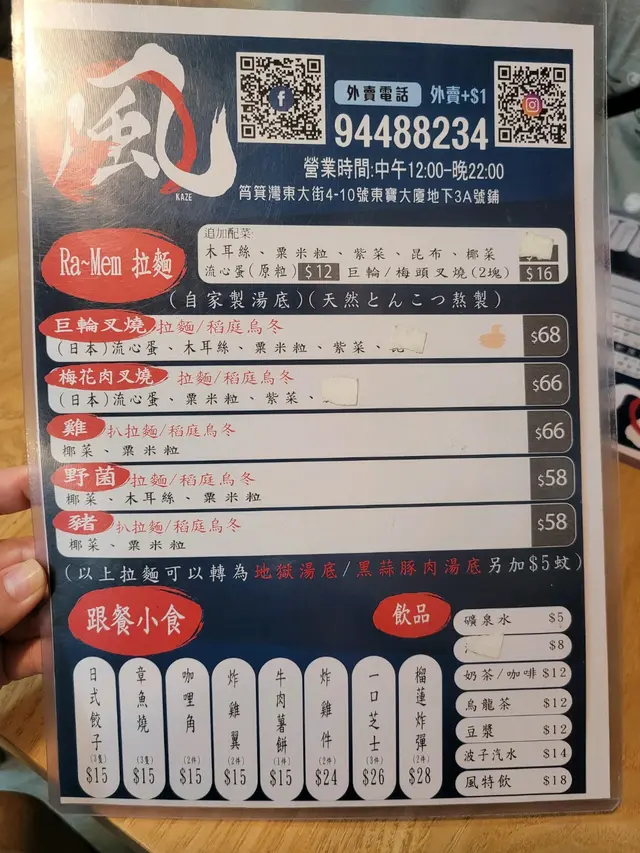 風
KAZE
外賣電話 外賣+$1
94488234
營業時間:中午12:00-晚22:00
筲箕灣東大街4-10號東寶大廈地下3A號鋪
Ra~Mem 拉麵
追加配菜:
木耳絲、粟米粒、紫菜、昆布、椰菜
流心蛋(原粒) $12 巨輪/梅頭叉燒(2塊) $16
(自家製湯底)(天然とんこつ熬製)
巨輪叉燒 拉麵/稻庭烏冬 $68
(日本)流心蛋、木耳絲、粟米粒、紫菜、
梅花肉叉燒 拉麵/稻庭烏冬 $66
(日本)流心蛋、粟米粒、紫菜、
雞 扒拉麵/稻庭烏冬 $66
椰菜、粟米粒
野菌 拉麵/稻庭烏冬 $58
椰菜、木耳絲、粟米粒
豬 扒拉麵/稻庭烏冬 $58
椰菜、粟米粒
(以上拉麵可以轉為地獄湯底/黑蒜豚肉湯底另加$5蚊)
跟餐小食
日式餃子 (3隻) $15
章魚燒 (3隻) $15
咖哩角 (2件) $15
炸雞翼 (2件) $15
牛肉薯餅 (1件) $15
炸雞件 (2件) $24
一口芝士 (3件) $26
榴蓮炸彈 (2件) $28
飲品
礦泉水 $5
$8
奶茶/咖啡 $12
烏龍茶 $12
豆漿 $12
波子汽水 $14
風特飲 $18